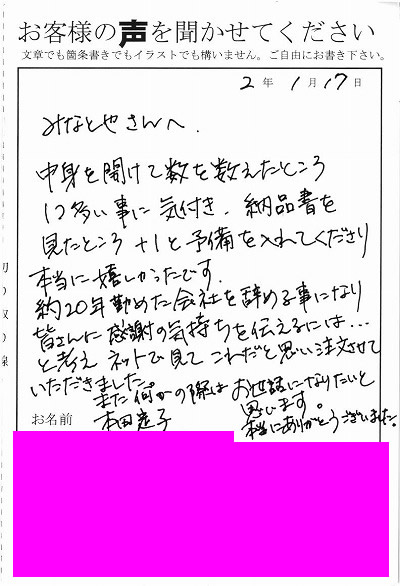 お客様の声を聞かせてください
文章でも箇条書きでもイラストでも構いません。ご自由にお書き下さい。
2年 1月17日
みなとやさんへ.
中身を開けて数を数えたところ
1つ多い事に気付き、納品書を
見たところ +1と予備を入れてくださり
本当に嬉しかったです.
約20年勤めた会社を辞める事になり
皆さんに感謝の気持ちを伝えるには…
と考え ネットで見て これだと思い注文させて
いただきました。
また何かの際は お世話になりたいと
思います。
本当にありがとうございました。
お名前 本田